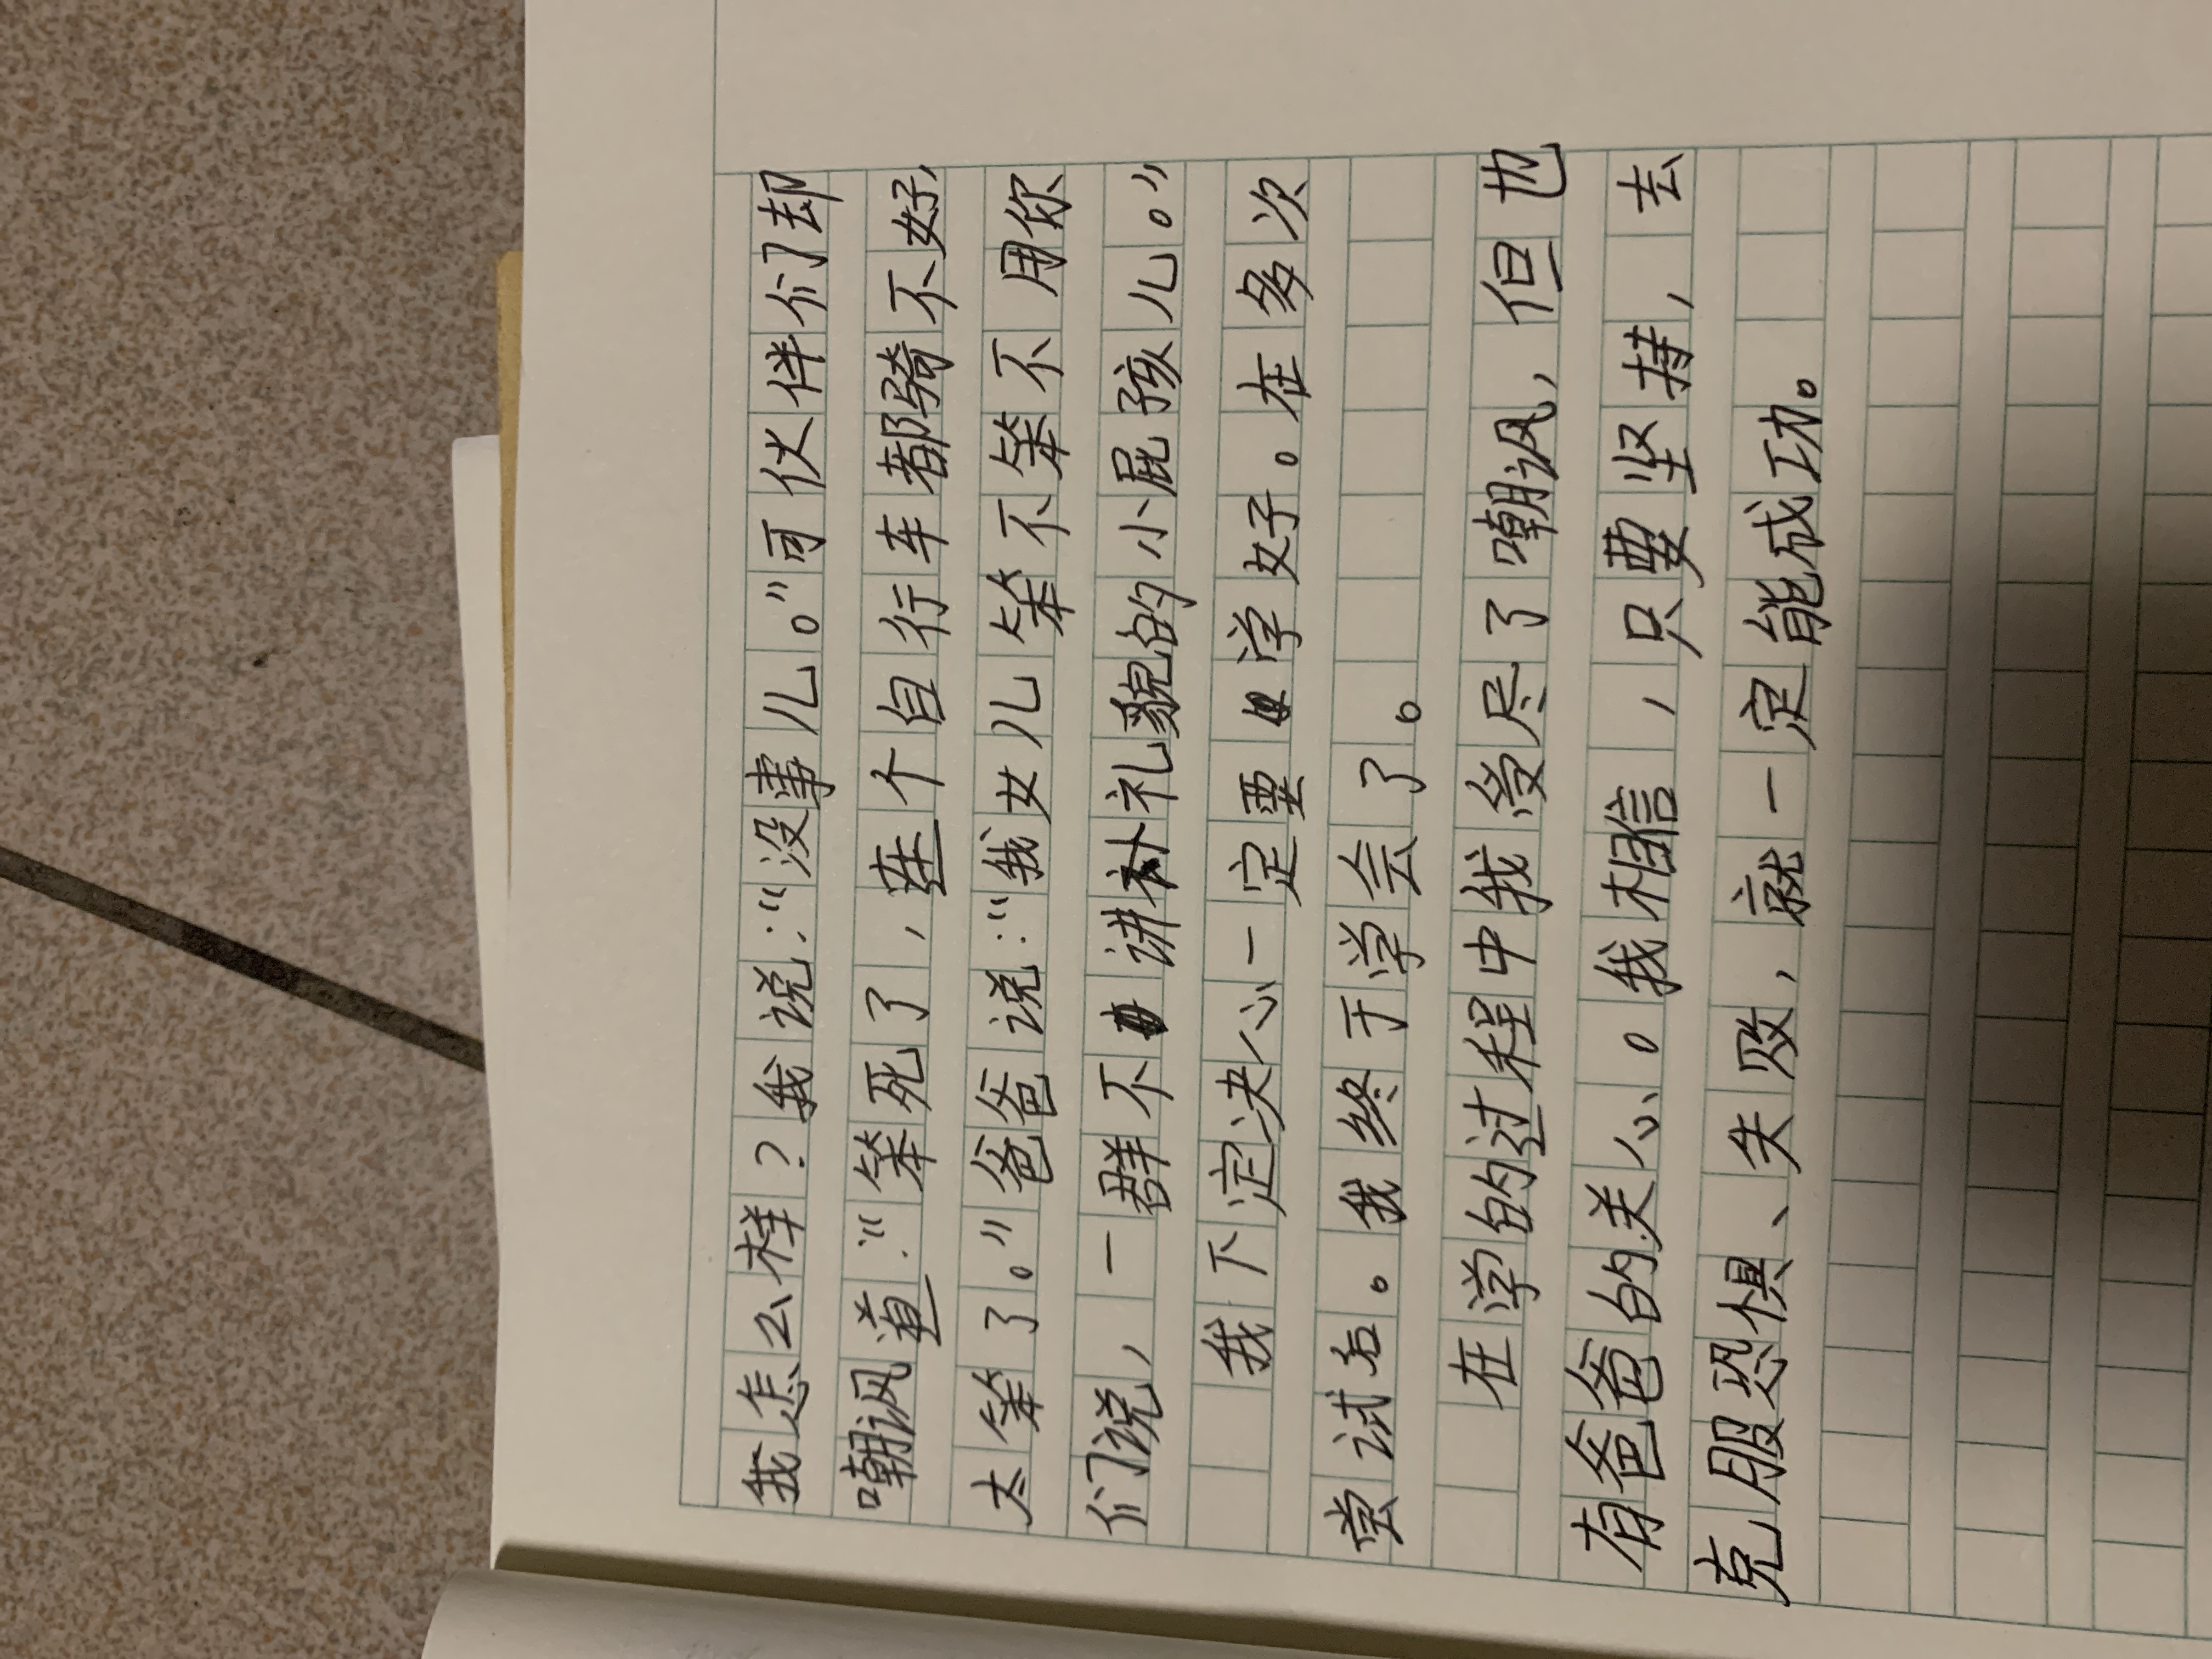 我怎么样？我说：“没事儿。”可伙伴们却
嘲讽道：“笨死了，连个自行车都骑不好，
太笨了。”爸爸说：“我女儿笨不笨不用你
们说，一群不讲礼貌的小屁孩儿。”
我下定决心一定要学好。在多次
尝试后。我终于学会了。
在学的过程中我受尽了嘲讽，但也
有爸爸的关心。我相信，只要坚持，去
克服恐惧、失败，就一定能成功。